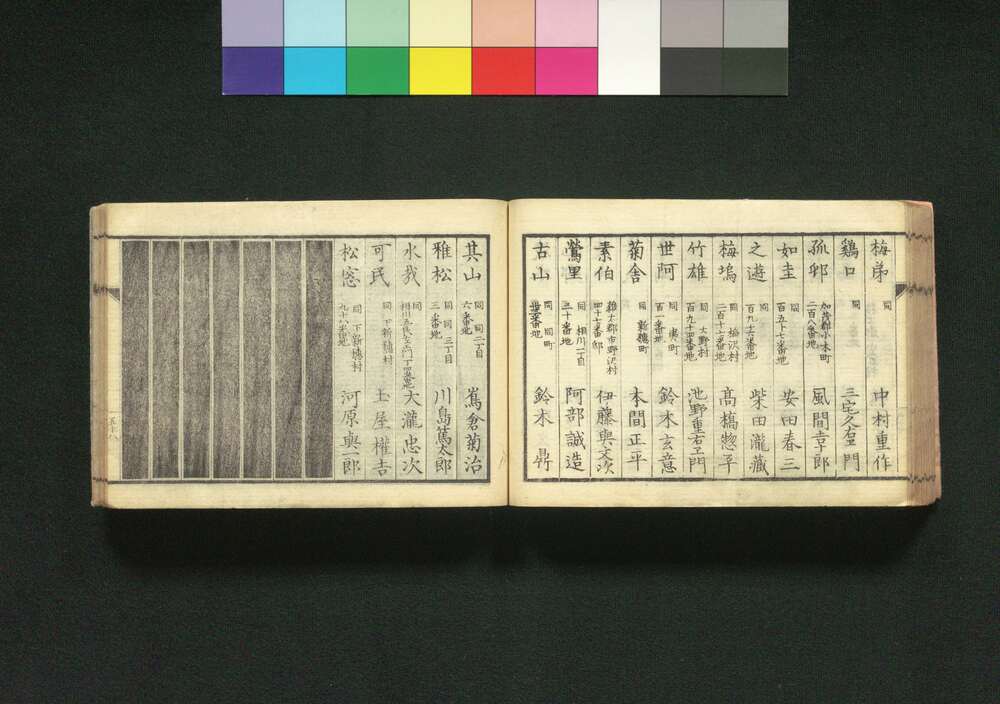 梅弟 同 中村重作
鶏口 同 三宅久右衛門
孤邨 加茂郡小木町 二百八番地 風間吉郎
如圭 同 百五十七番地 安田春三
之遊 同 百九十六番地 柴田瀧藏
梅塢 同 松沢村 二百十七番地 髙橋惣平
竹雄 同 大野村 百九十四番地 池野重右エ門
世阿 同 夷町 百一番地 鈴木玄意
菊舎 同 新穂町 本間正平
素伯 雜太郡市野沢村 四十七番邸 伊藤與文次
鶯里 同 相川一丁目 三十番地 阿部誠造
古山 同 同町 番地 鈴木鼎
其山 同 同二丁目 六番地 嶌倉菊治
雅松 同 同三丁目 三番地 川島篤太郎
水哉 同 大瀧忠次
可民 同 下新穂村 土屋權吉
松窓 同 下新穂村 九十八番地 河原與一郎